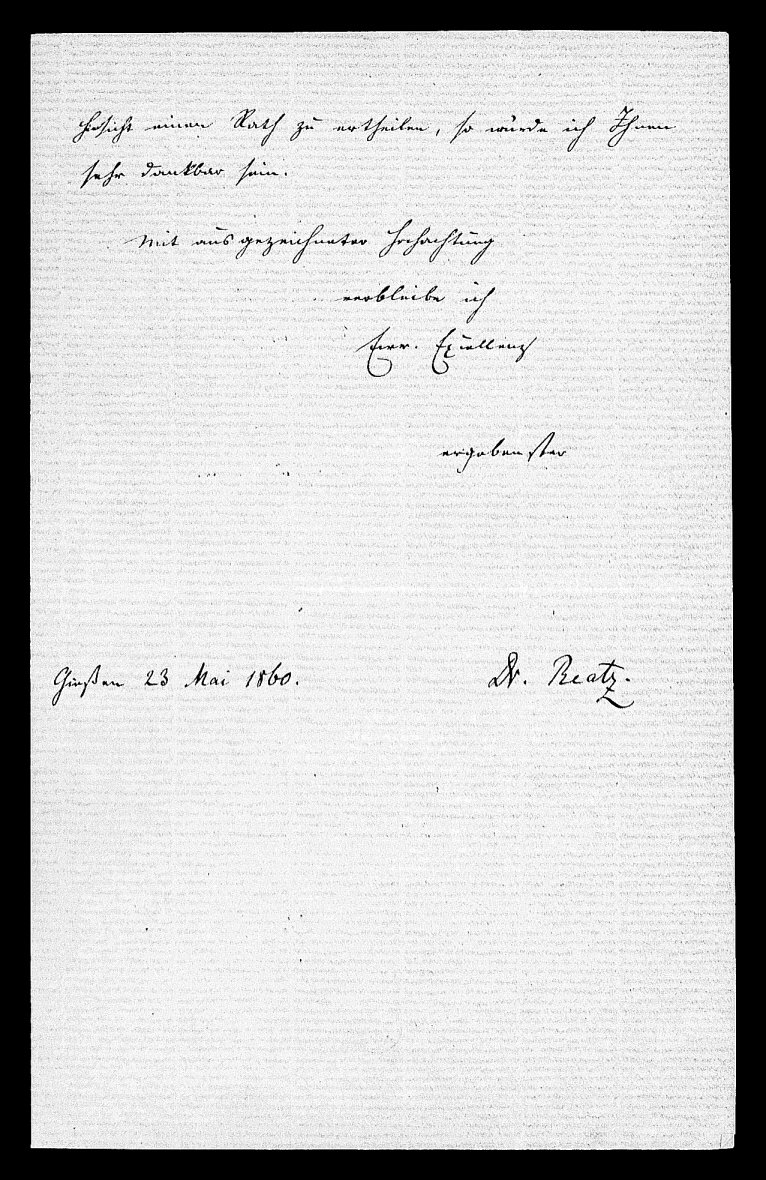 Hinsicht einen Rath zu ertheilen, so würde ich Ihnen
sehr dankbar sein.
Mit ausgezeichneter Hochachtung
verbleibe ich
Eurer Excellenz
ergebenster
Gießen 23 Mai 1860.
Dr. Reatz.